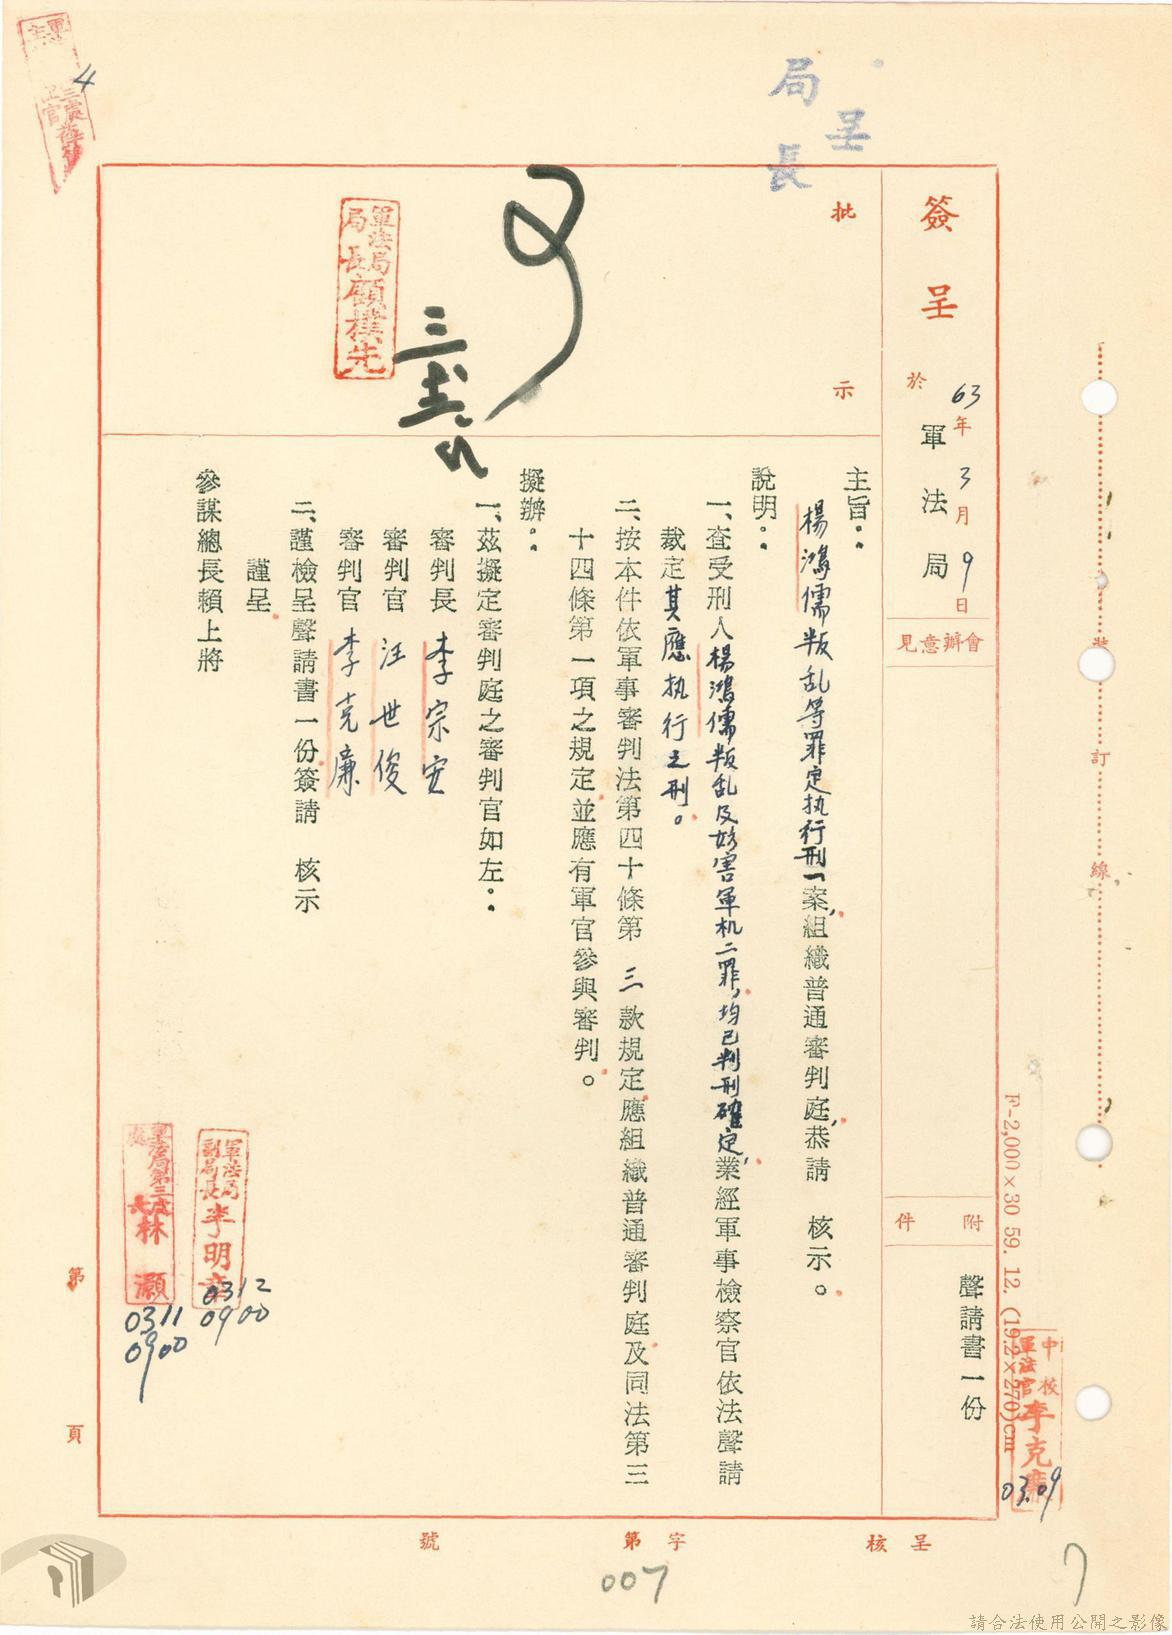 呈
局長
簽呈
於
63年3月9日
軍法局
會辦意見
附件
聲請書一份
批示
可
軍法局
局長顧樸先
主旨：
楊鴻儒叛乱等罪定执行刑一案,組織普通審判庭,恭請　核示。
說明：
一、查受刑人楊鴻儒叛乱及妨害軍机二罪,均已判刑確定,業經軍事檢察官依法聲請
裁定其應执行之刑。
二、按本件依軍事審判法第四十條第三款規定應組織普通審判庭及同法第三
十四條第一項之規定並應有軍官參與審判。
擬辦：
一、茲擬定審判庭之審判官如左：
審判長　李宗安
審判官　汪世俊
審判官　李克廉
二、謹檢呈聲請書一份簽請　核示
謹呈
參謀總長賴上將
軍法局
副局長李明章
0312
0900
軍法局第三處
處長林灝
0311
0900
中校
軍法官李克廉
03.09
F-2,000×30 59. 12. (19.2×270)cm
裝訂線
第　頁
呈核　字第　號
007
4
請合法使用公開之影像